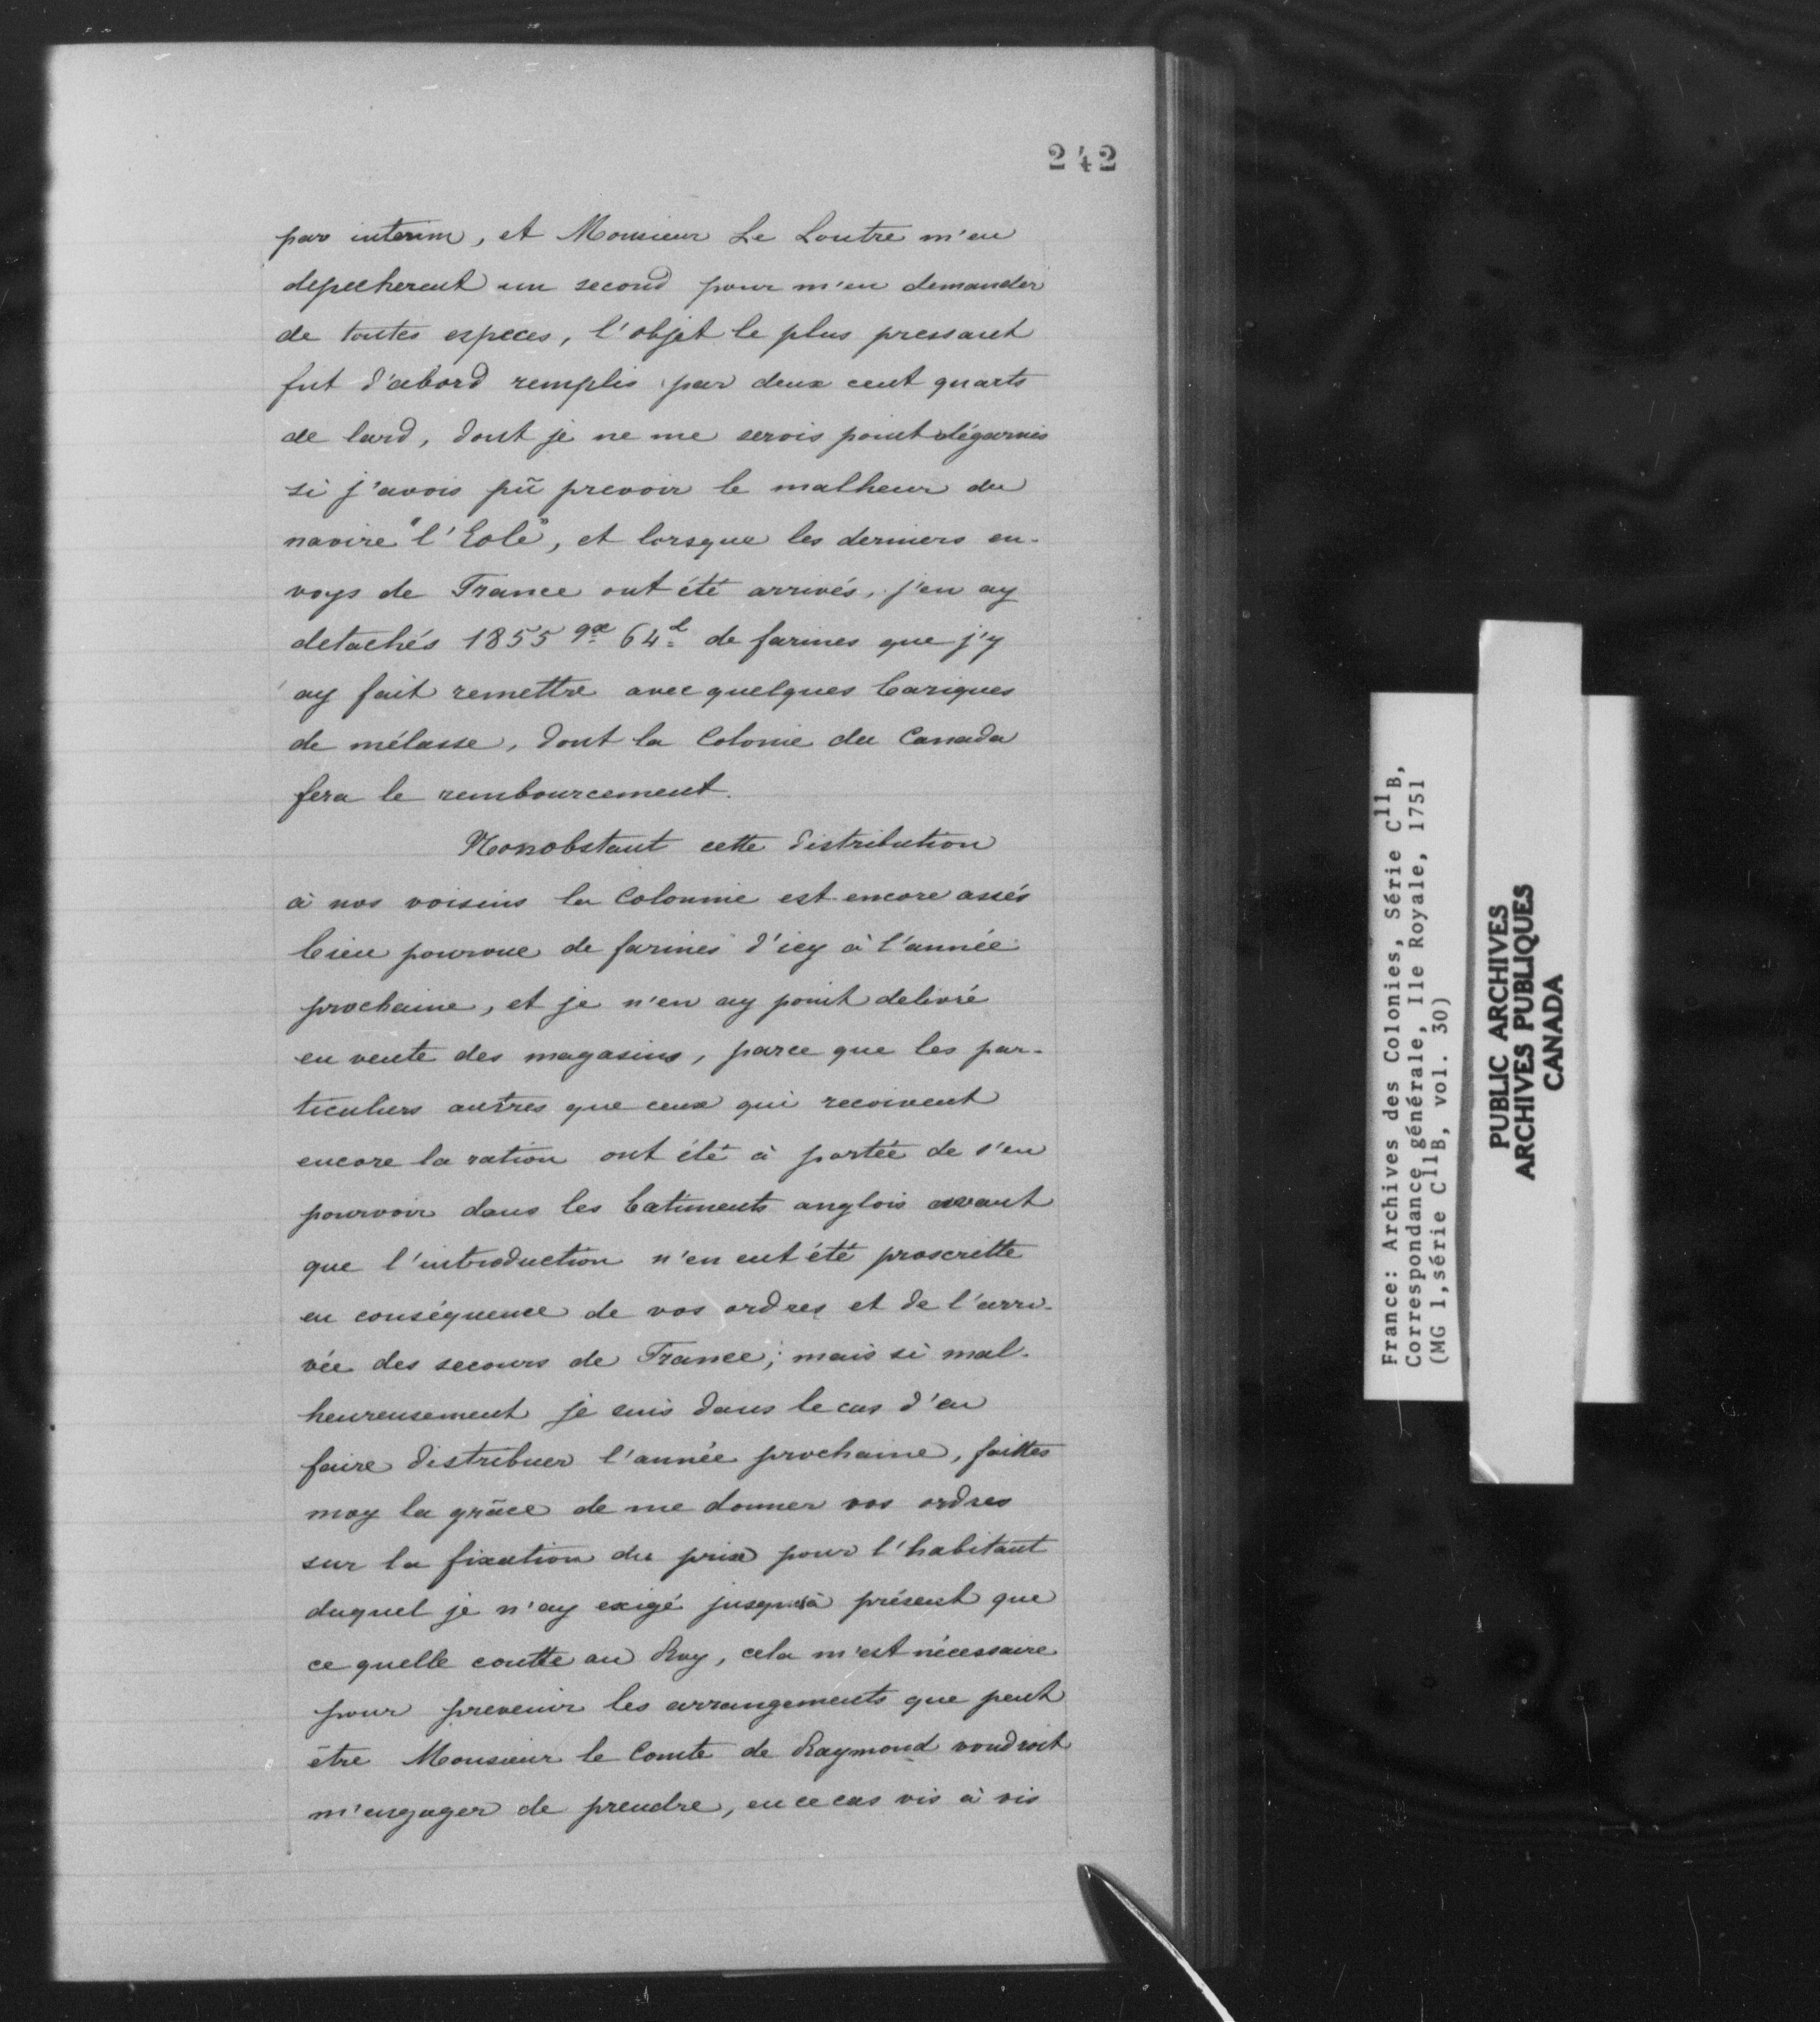 242
par interim, et Monsieur Le Loutre m'en
depecherent un second pour m'en demander
de toutes especes, l'objet le plus pressant
fut d'abord remplis par deux cent quarts
de lard, dont je ne me serois point dégarnis
si j'avois pû prevoir le malheur du
navire "l'Eole", et lorsque les derniers en-
voys de France ont été arrivés, j'en ay
detachés 1855 qx 64 l de farines que j'y
ay fait remettre avec quelques bariques
de mélasse, dont la Colonie du Canada
fera le rembourcement.
Nonobstant cette distribution
à nos voisins la Colonnie est encore assés
bien pourvue de farines d'icy à l'année
prochaine, et je n'en ay point delivré
en vente des magasins, parce que les par-
ticuliers autres que ceux qui recoivent
encore la ration ont été à portée de s'en
pourvoir dans les batiments anglois avant
que l'introduction n'en eut été proscritte
en conséquence de vos ordres et de l'arri-
vée des secours de France; mais si mal-
heureusement je suis dans le cas d'en
faire distribuer l'année prochaine, faittes
moy la grâce de me donner vos ordres
sur la fixation du prix pour l'habitant
duquel je n'ay exigé jusqu'à présent que
ce quelle coutte au Roy, cela m'est nécessaire
pour prevenir les arrangements que peut
être Monsieur le Comte de Raymond voudroit
m'engager de prendre, en ce cas vis à vis
France: Archives des Colonies, Série C11B,
Correspondance générale, Ile Royale, 1751
(MG 1, série C11B, vol. 30)
PUBLIC ARCHIVES
ARCHIVES PUBLIQUES
CANADA